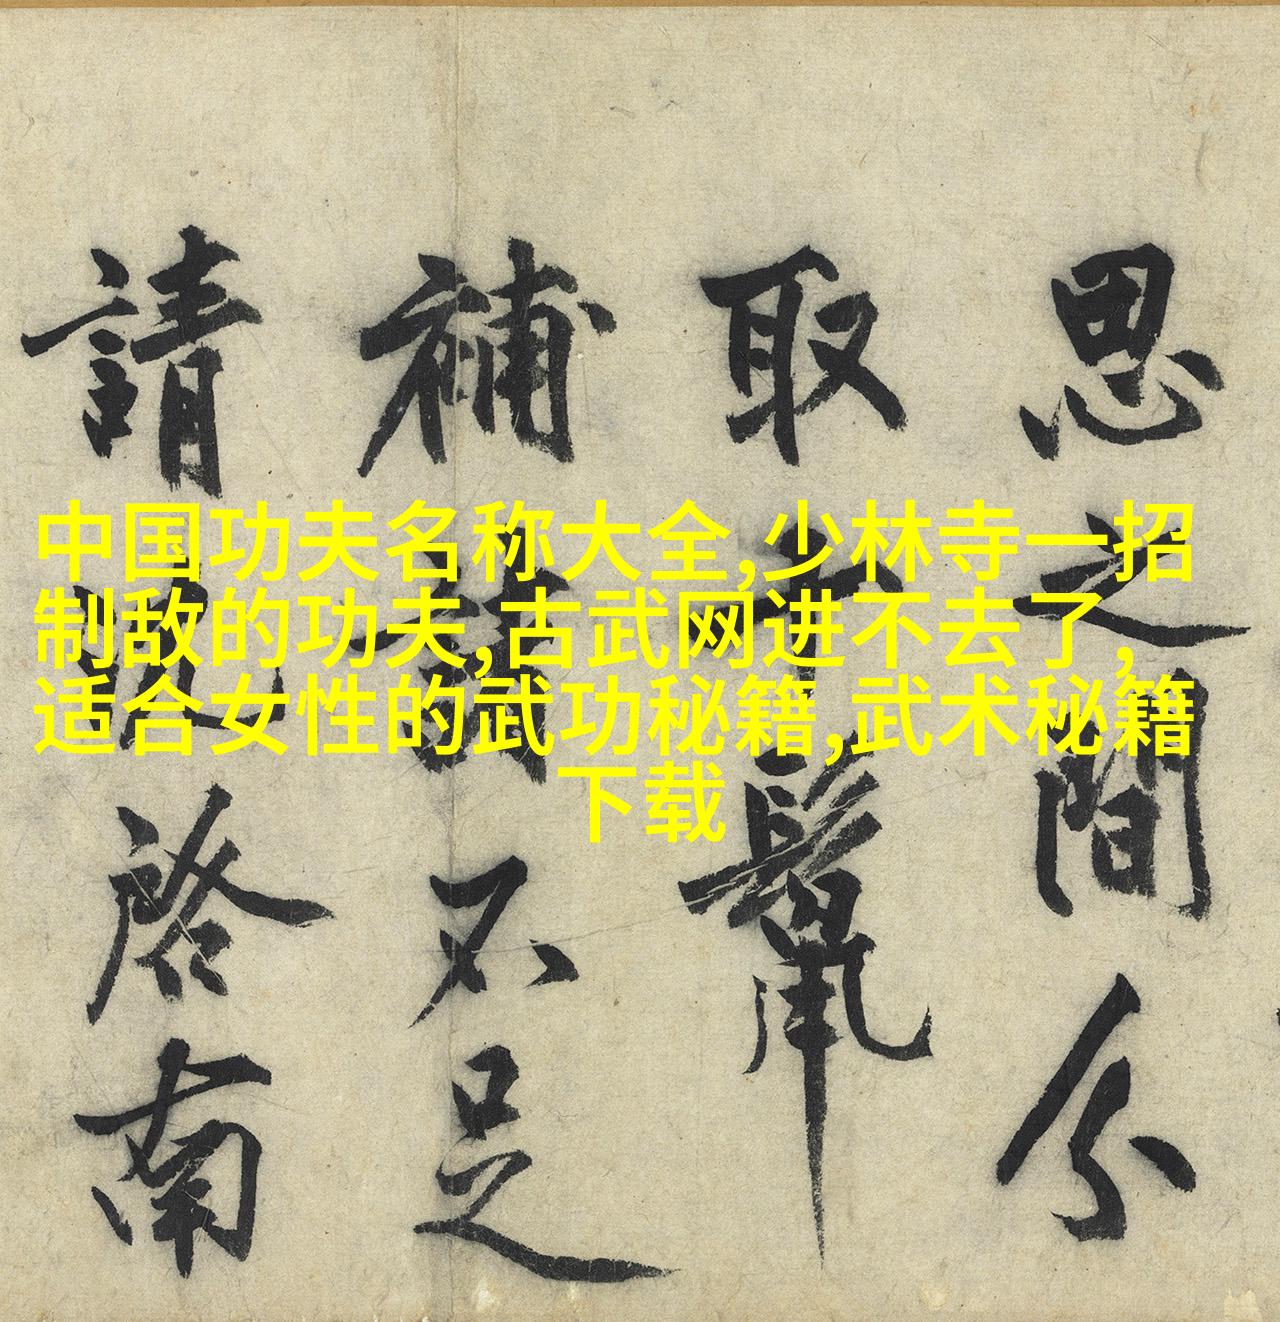 中国功夫名称大全,少林寺一招
制敌的功夫,古武网进不去了,
适合女性的武功秘籍,武术秘籍
下载
思之間分
取十鬣
補諸不足
請沈啓南